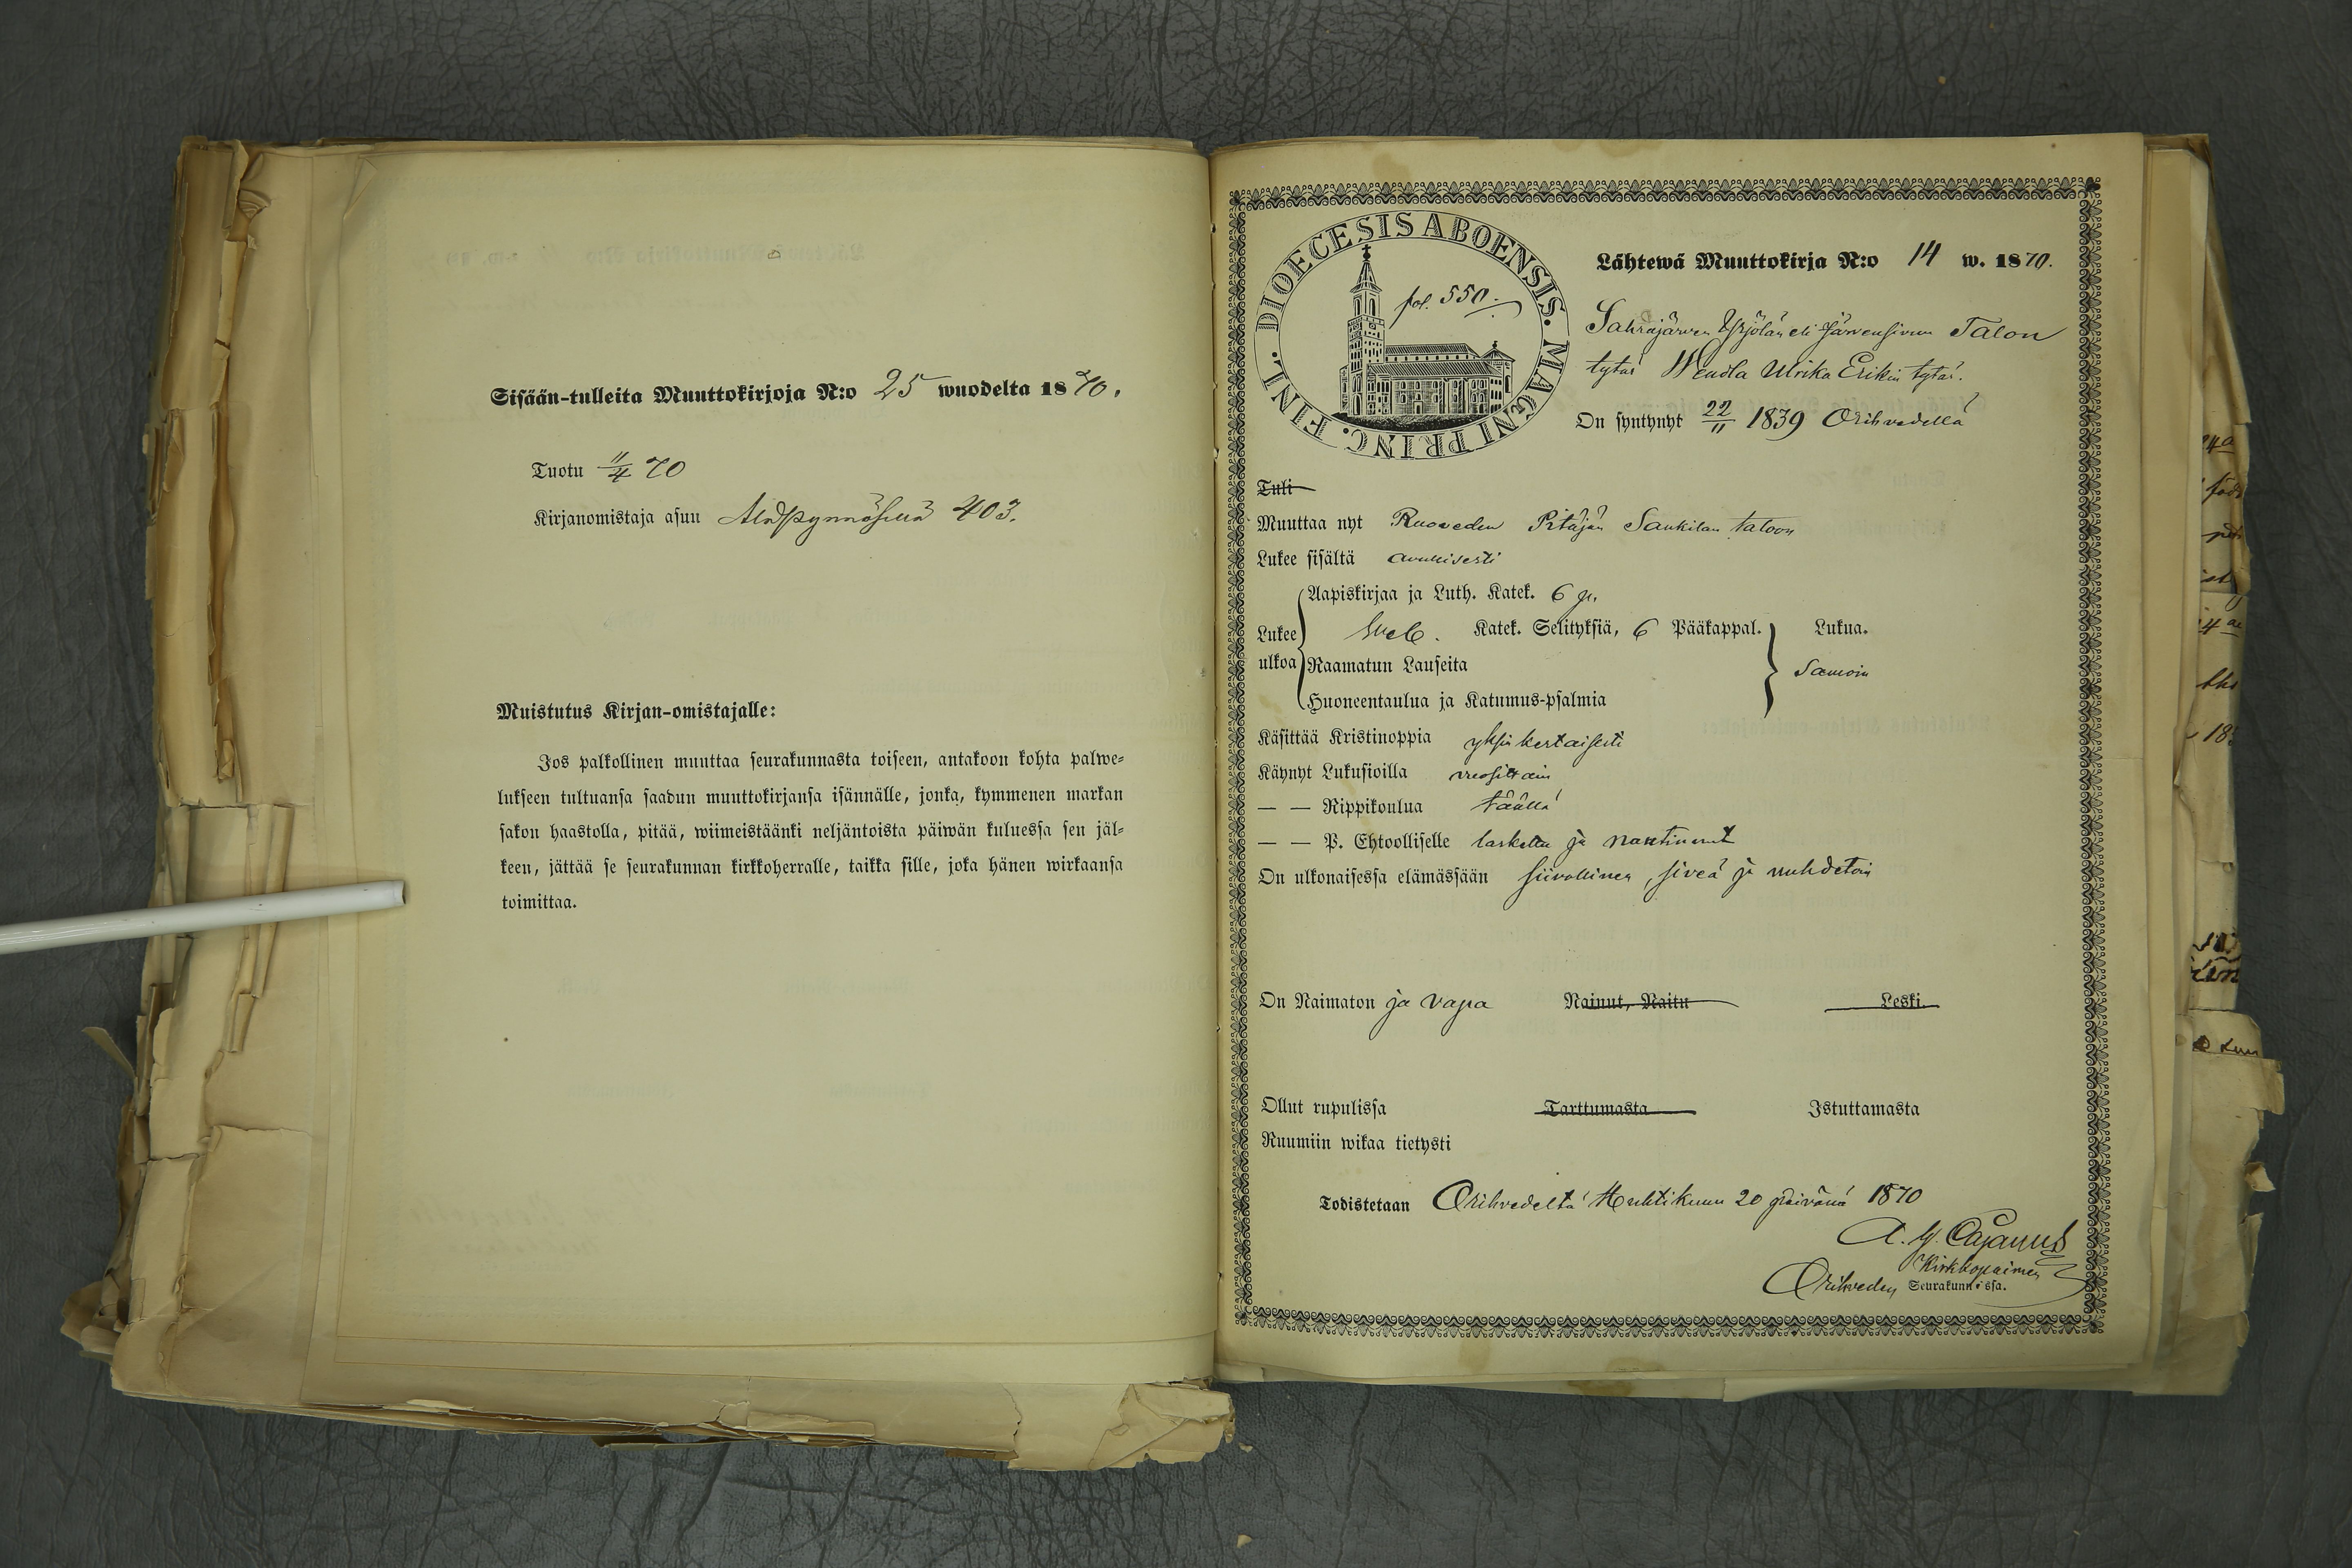 Sisään-tulleita Muuttokirjoja N:o 25 wuodelta 1870.
Tuotu 11/4 70
Kirjanomistaja asuu 403.
Muistutus Kirjan-omistajalle:
Jos palkollinen muuttaa seurakunnasta toiseen, antakoon kohta palwe-
lukseen tultuansa saadun muuttokirjansa isännälle, jonka, kymmenen markan
sakon haastolla, pitää, wiimeistäänki neljäntoista päiwän kuluessa sen jäl-
keen, jättää se seurakunnan kirkkoherralle, taikka sille, joka hänen wirkaansa
toimittaa.
DIOECESIS ABOENSIS. MAGNI PRINC. FINL.
fol. 550.
Lähtewä Muuttokirja N:o 14 w. 1870.
Yrjölän eli Järvensivun Talon
tytär Wendla Ulrika Erikin tytär.
On syntynyt 22/11 1839 Orihvedellä
Tuli
Muuttaa nyt Ruoveden Pitäjän Saukilan taloon
Lukee sisältä avullisesti
Aapiskirjaa ja Luth. Katek. 6 p.
Lukee ulkoa Sveb. Katek. Selityksiä, 6 Pääkappal. Lukua.
Raamatun Lauseita Samoin
Huoneentaulua ja Katumus-psalmia
Käsittää Kristinoppia yksinkertaisesti
Käynyt Lukusioilla vuosittain
— — Rippikoulua täällä
— — P. Ehtoolliselle laskettu ja nautinnut
On ulkonaisessa elämässään siivollinen, siveä ja nuhdetoin
On Naimaton ja vapa Nainut, Naitu Leski.
Ollut rupulissa Tarttumasta Istuttamasta
Ruumiin wikaa tietysti
Todistetaan Orihvedeltä Huhtikuun 20 päivänä 1870
A. W. Cajanus
Kirkkopaimen
Orihveden Seurakunnissa.